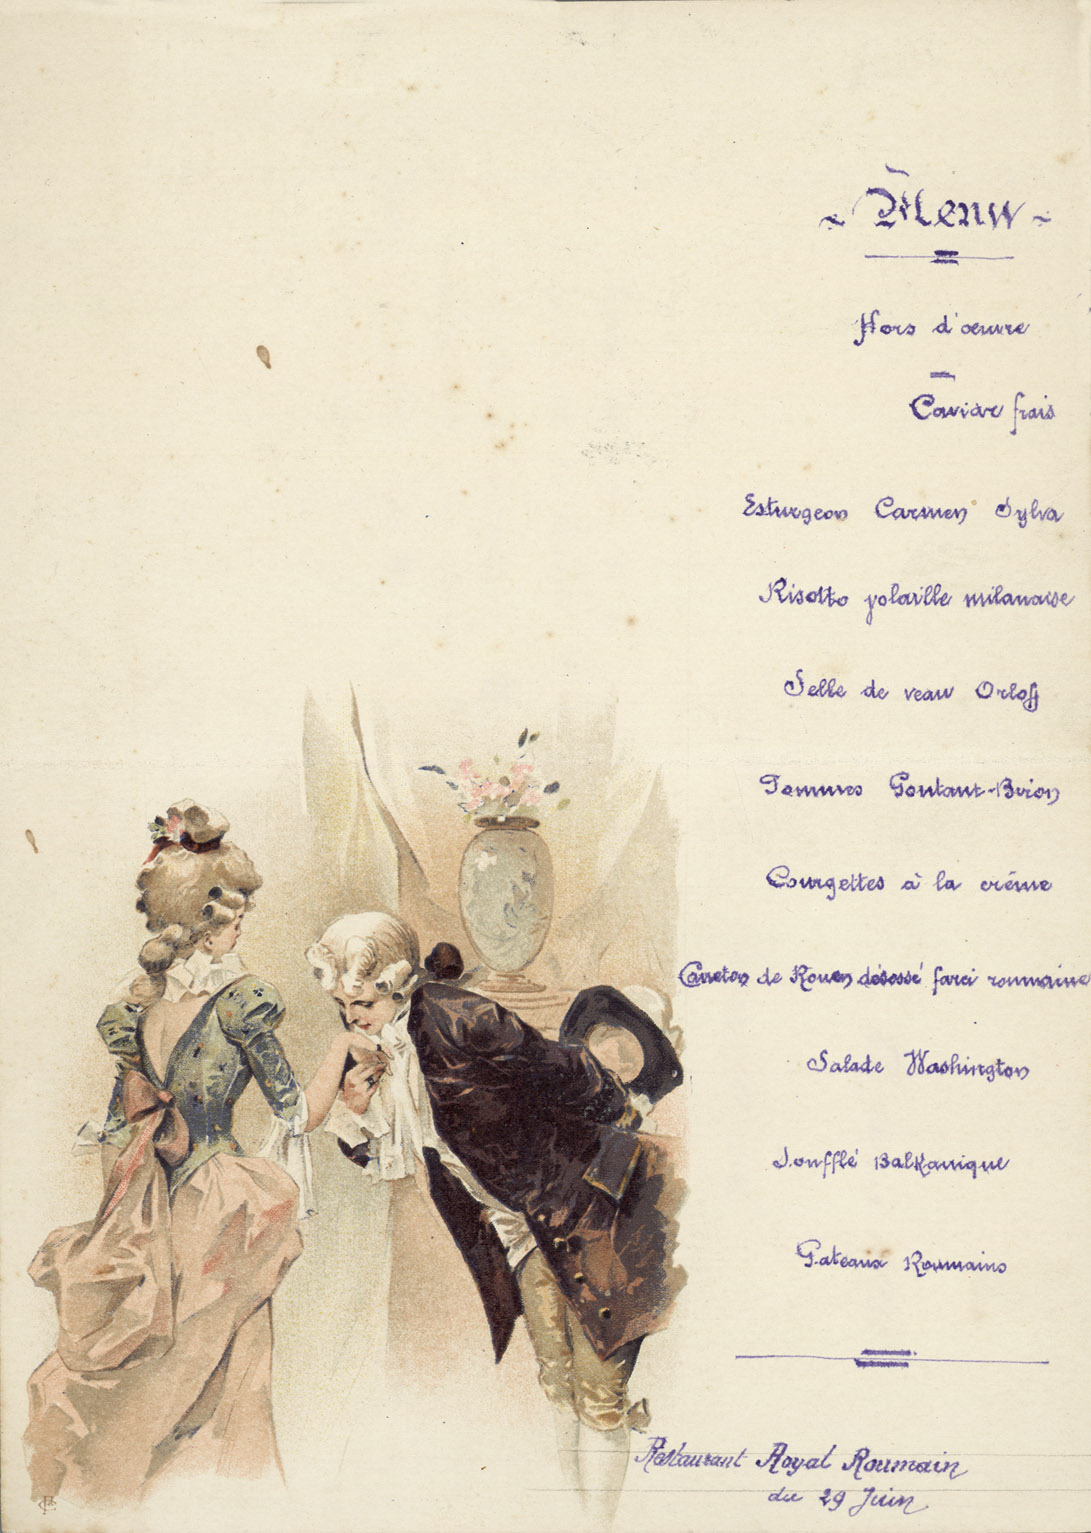 ~ Menu ~
Hors d'œuvre
Caviar frais
Esturgeon Carmen Sylva
Risotto volaille milanaise
Selle de veau Orloff
Pommes Gontant-Biron
Courgettes à la crême
Caneton de Rouen désossé farci roumaine
Salade Washington
Soufflé Balkanique
Gateaux Roumains
Restaurant Royal Roumain
du 29 Juin